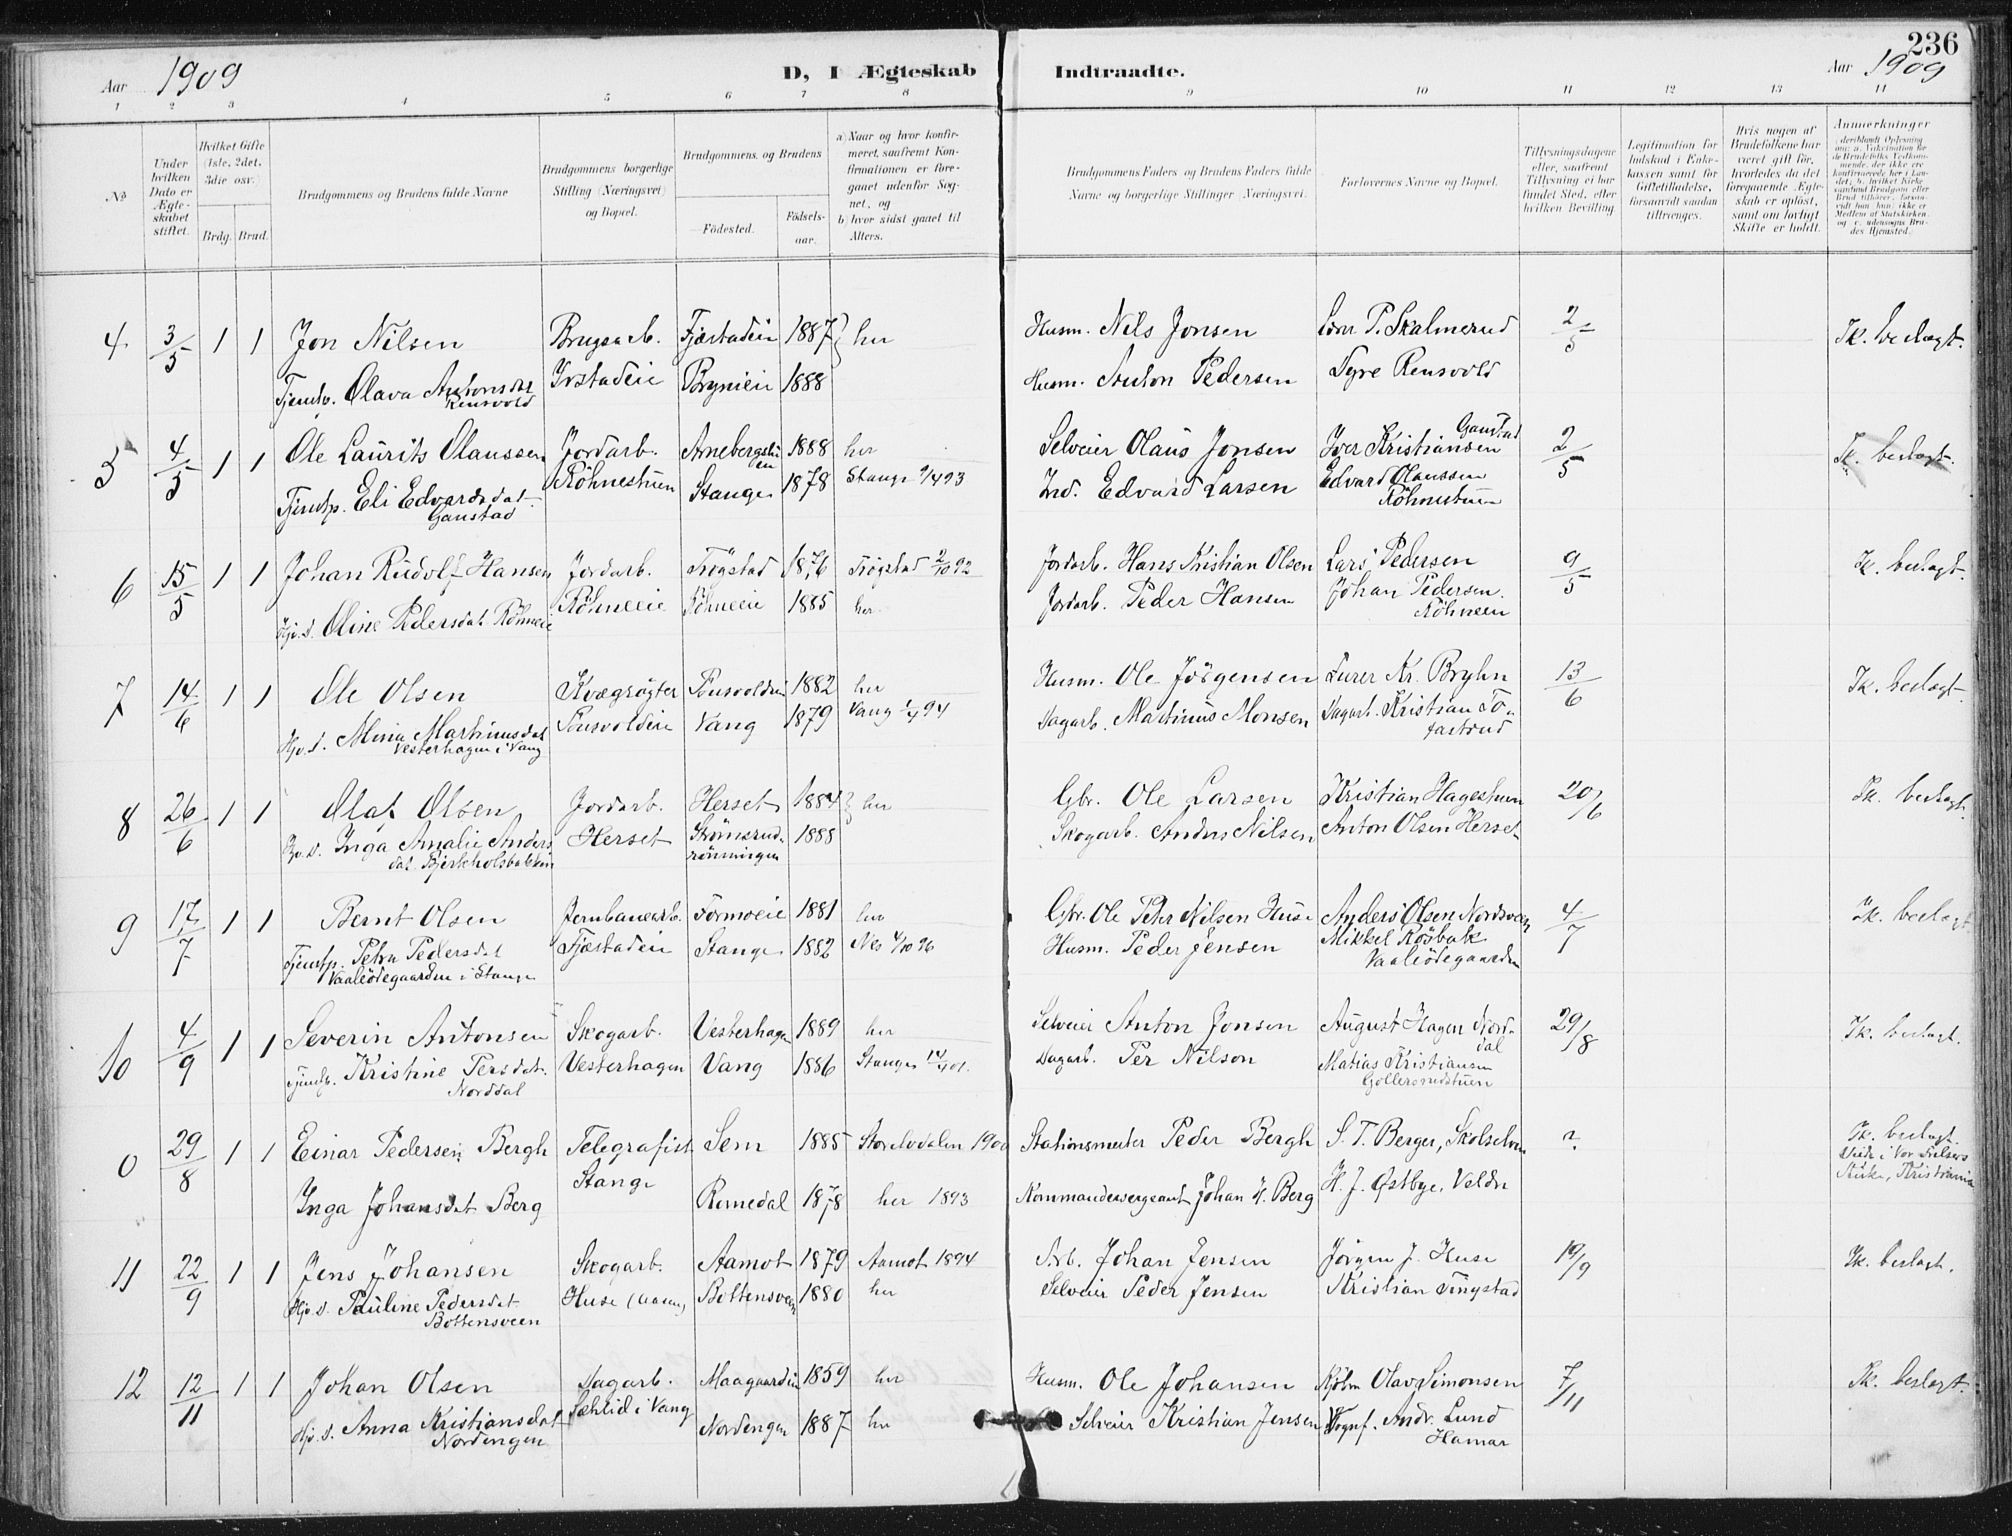 236
Aar 1909
D, I Ægteskab
Indtraadte.
Aar 1909
1 2 3 4 5 6 7 8 9 10 11 12 13 14
No
Under hvilken Dato er Ægteskabet stiftet.
Hvilket Gifte (1ste, 2det, 3die osv.)
Brdg. Brud.
Brudgommens og Brudens fulde Navne
Brudgommens borgerlige Stilling (Næringsvei) og Bopæl.
Brudgommens og Brudens
Födested.
Födselsaar.
a) Naar og hvor konfirmeret, saafremt Konfirmationen er foregaaet udenfor Sognet, og
b) hvor sidst gaaet til Alters.
Brudgommens Faders og Brudens Faders fulde Navne og borgerlige Stillinger (Næringsvei.
Forlovernes Navne og Bopæl.
Tillysningsdagene eller, saafremt Tillysning ei har fundet Sted, efter hvilken Bevilling.
Legitimation for Indskud i Enkekassen samt for Giftetilladelse, forsaavidt saadan tiltrænges.
Hvis nogen af Brudefolkene har været gift för, hvorledes da det foregaaende Ægteskab er oplöst, samt om lovligt Skifte er holdt.
Anmerkninger
4 3/5 1 1 Jon Nilsen Brugsarb. Fjæstadeie 1887 } her Husm. Nils Jonsen Lars P. Skalmerud 2/5 Tk. beslagt.
Tjenstp. Olava Antonsdat Ivstadeie Brynieie 1888 Husm. Anton Pedersen Syre Rensvold
Rensvold
5 4/5 1 1 Ole Laurits Olaussen Jordarb. Arnebergstuen 1888 her Selveier Olaus Jonsen Iver Kristiansen Gaustad 2/5 Tk. beslagt.
Tjenstp. Eli Edvardsdat. Röhnestuen Stange 1878 Stange 9/4 93 Ind. Edvard Larsen Edvard Olaussen
Gaustad Röhnestuen
6 15/5 1 1 Johan Rudolf Hansen Jordarb. Trögstad 1876 Trögstad 2/10 92 Jordarb. Hans Kristian Olsen Lars Pedersen 9/5 Tk. beslagt.
Hjv. d. Oline Pedersdat Rönneie Röhneeie Röhneeie 1885 her Jordarb. Peder Hansen Johan Pedersen.
Röhneen
7 14/6 1 1 Ole Olsen Kvægrögter 1882 her Husm. Ole Jörgensen Lurer Kr. Bryhn 13/6 Tk. beslagt.
Hjv. d. Mina Martinusdat Vang 1879 Vang 1/4 94 Dagarb. Martinus Monsen Dagarb. Kristian Tofastrud
Vesterhagen i Vang
8 26/6 1 1 Olaf Olsen Jordarb. Herset 1884 } her Gbr. Ole Larsen Kristian Hagestuen 20/6 Tk. beslagt.
Hjv. d. Inga Amalie Anders Herset Strömsrudrönningen 1888 Skogarb. Anders Nilsen Anton Olsen Herset
dat. Bjerkholsbakken
9 17/7 1 1 Bernt Olsen Jernbanearb. Tormoeie 1881 her Gbr. Ole Petr. Nilsen Huse Anders Olsen Nordsveen 4/7 Tk. beslagt
Tjenstp. Petra Pedersdat Fjæstadeie Stange 1882 Nes 4/10 96 Husm. Peder Jensen Mikkel Rösbak
Vaaleödegaarden i Stange Vaaleödegaarden
10 4/9 1 1 Severin Antonsen Skogarb. Vesterhagen 1889 her Selveier Anton Jonsen August Hagen Norddal 29/8 Tk. beslagt.
Tjenstp. Kristine Persdat. Vesterhagen Vang 1886 Stange 14/4 01. Dagarb. Per Nilson Matias Kristiansen
Norddal Gollersrudstuen
0 29/8 1 1 Einar Pedersen Bergh Telegrafist Sem 1885 Storelvdalen 1900 Stationsmester Peder Bergh S. T. Berger, Skolselven ? Tk. beslagt.
Viede i Vor Frelsers
Kirke, Kristiania
Stange
Inga Johansdat Berg Romedal 1878 her 1893 Kommandersergeant Johan H. Berg H. J. Østbye, Veldre
11 22/9 1 1 Jens Johansen Skogarb. Aamot 1879 Aamot 1894 Arb. Johan Jensen Jörgen J. Huse 19/9 Tk. beslagt.
Hjv. d. Pauline Pedersdat Huse (Aasen) Bottensveen 1880 her Selveier Peder Jensen Kristian Tingstad
Bottensveen
12 12/11 1 1 Johan Olsen Dagarb. Maagaardeie 1859 her Husm. Ole Johansen Kjöbm Olav Simonsen 7/11 Tk. beslagt.
Hjv. d. Anna Kristiansdat Sæhlid i Vang Nordengen 1887 her Selveier Kristian Jensen Vognf. Andr. Lund
Nordengen Hamar